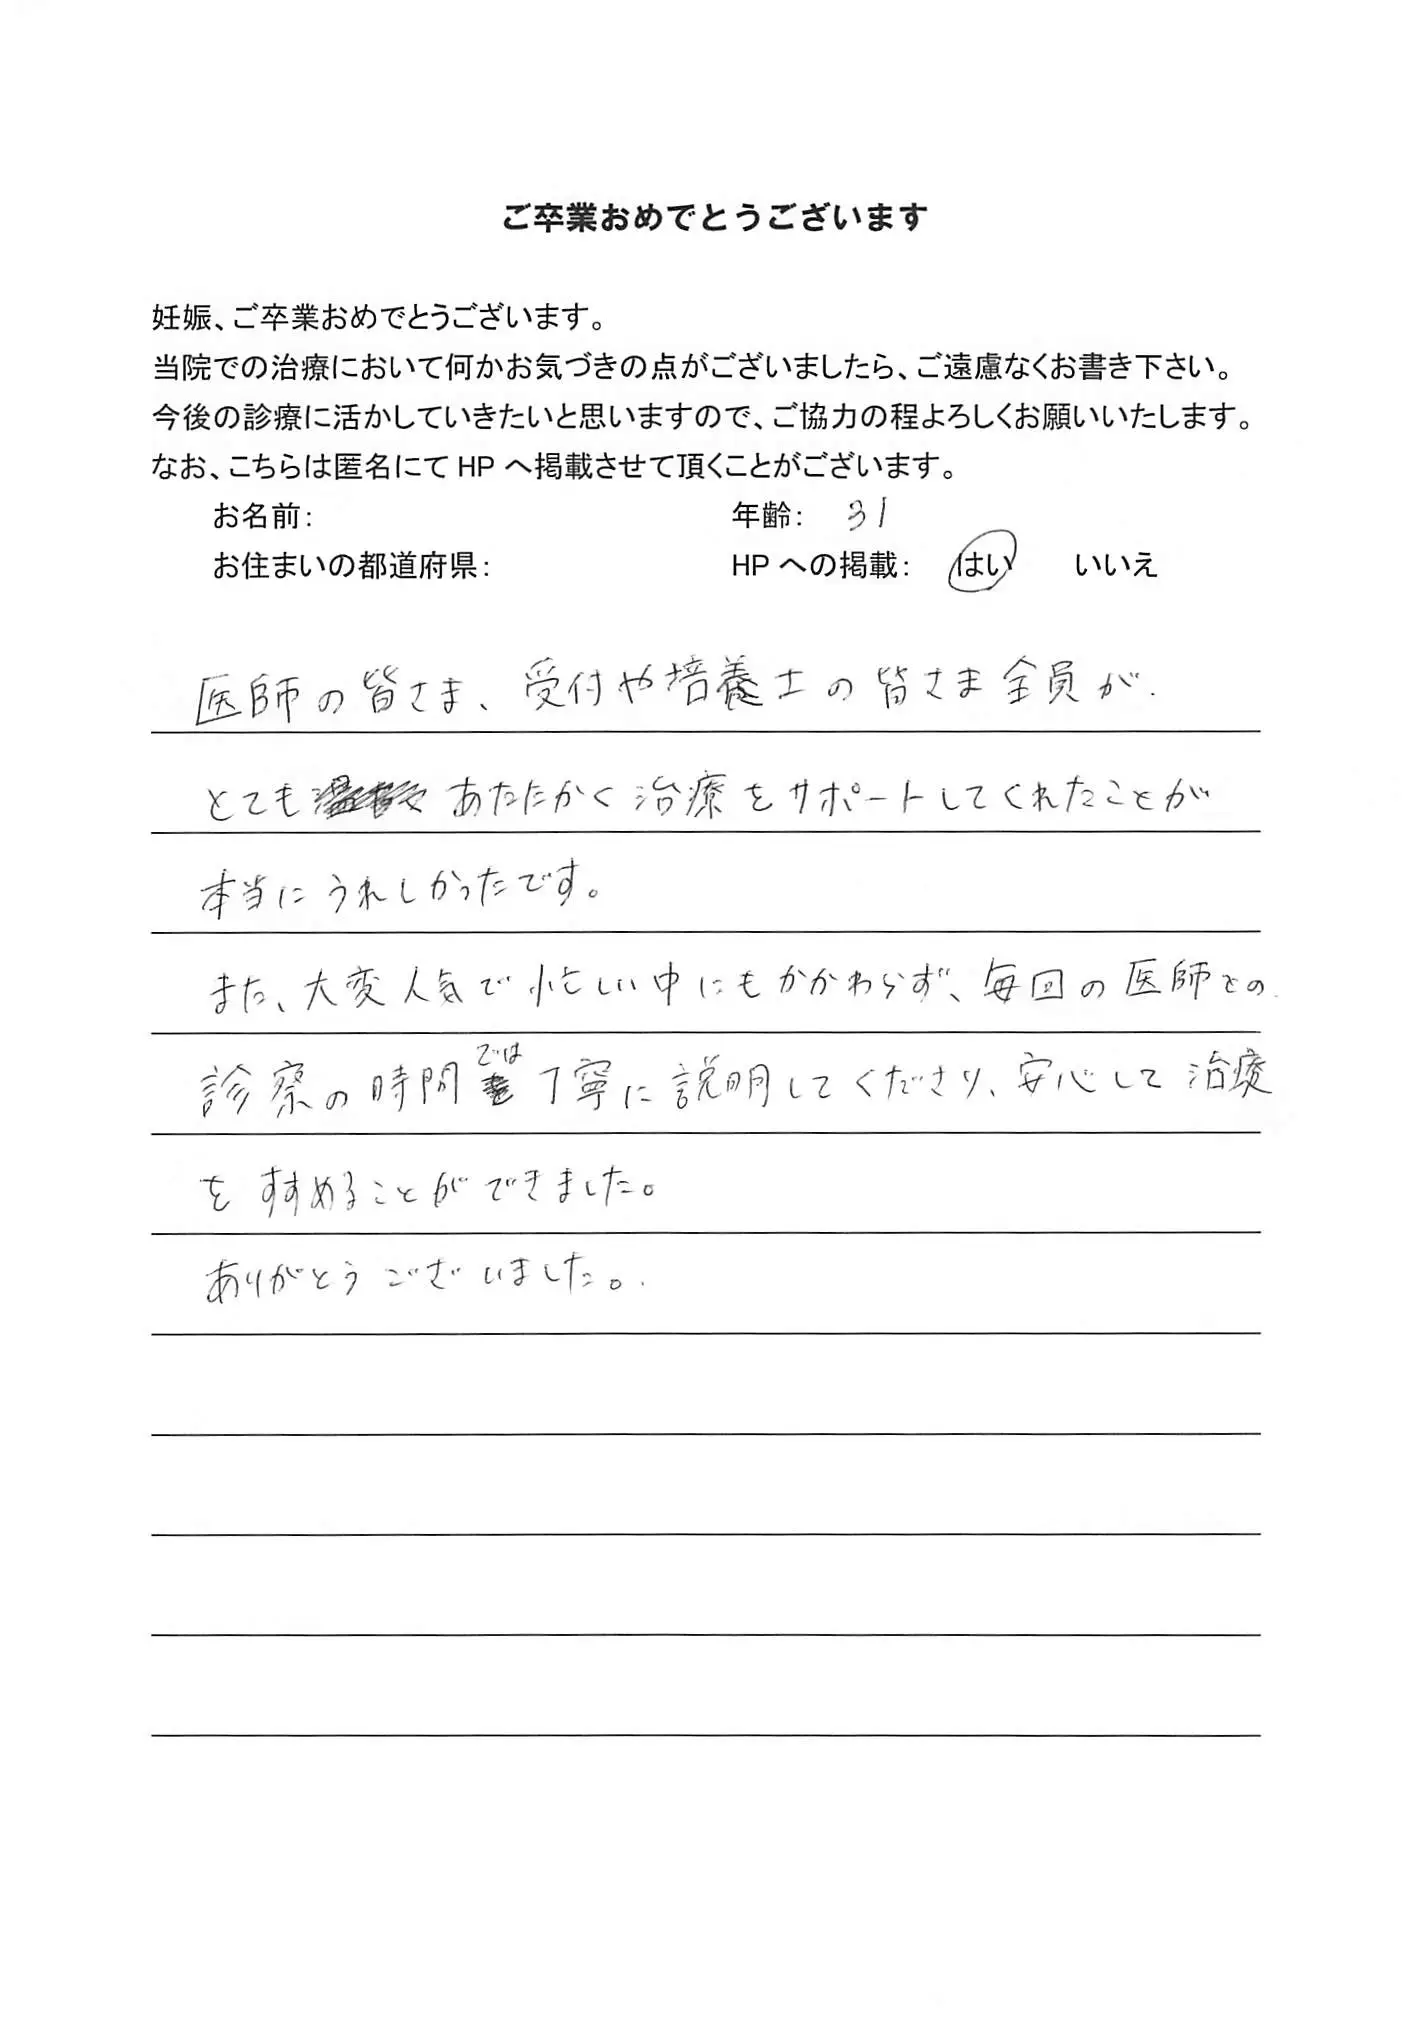 ご卒業おめでとうございます
妊娠、ご卒業おめでとうございます。
当院での治療において何かお気づきの点がございましたら、ご遠慮なくお書き下さい。
今後の診療に活かしていきたいと思いますので、ご協力の程よろしくお願いいたします。
なお、こちらは匿名にて HP へ掲載させて頂くことがございます。
お名前： 年齢： 31
お住まいの都道府県： HP への掲載： はい いいえ
医師の皆さま、受付や培養士の皆さま全員が
とても あたたかく治療をサポートしてくれたことが
本当にうれしかったです。
また、大変人気で忙しい中にもかかわらず、毎回の医師との
診察の時間では丁寧に説明してくださり、安心して治療
をすすめることができました。
ありがとうございました。